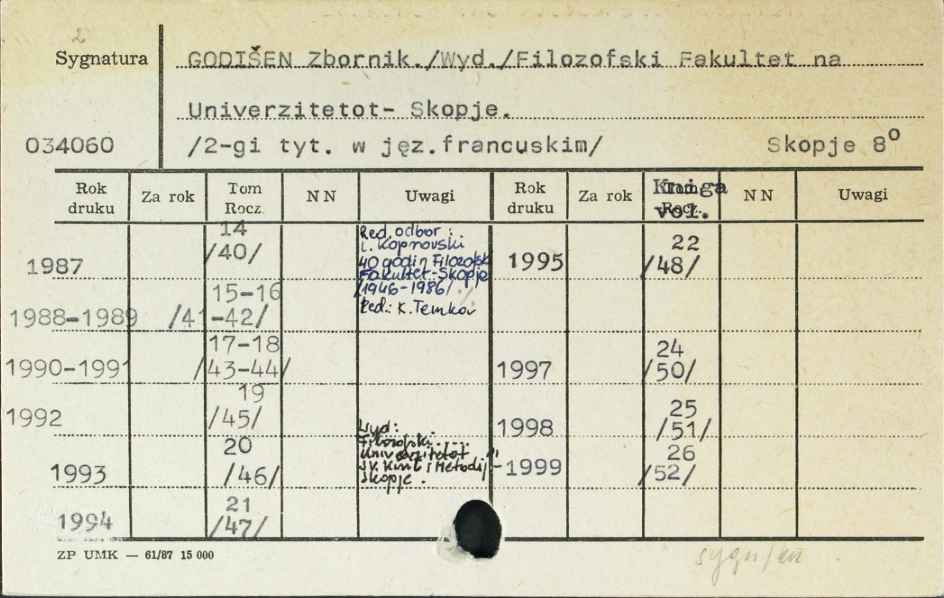 2
Sygnatura
GODIŠEN Zbornik./Wyd./Filozofski Fakultet na
Univerzitetot- Skopje.
034060
/2-gi tyt. w jęz.francuskim/ Skopje 8°
Rok druku Za rok Tom Rocz. NN Uwagi Rok druku Za rok Kniga vol. NN Uwagi
1987 14 /40/
Red. odbor:
L. Koprovski
40 godin Filozofski
Fakultet-Skopje
/1946-1986/.
Red.: K. Temkov
1995 22 /48/
1988-1989 15-16 /41-42/
1990-1991 17-18 /43-44/
1997 24 /50/
1992 19 /45/
Wyd:
Filozofski....
Univerzitetot
Sv. Kiril i Metodij"-
Skopje.
1998 25 /51/
1993 20 /46/
1999 26 /52/
1994 21 /47/
ZP UMK — 61/87 15 000